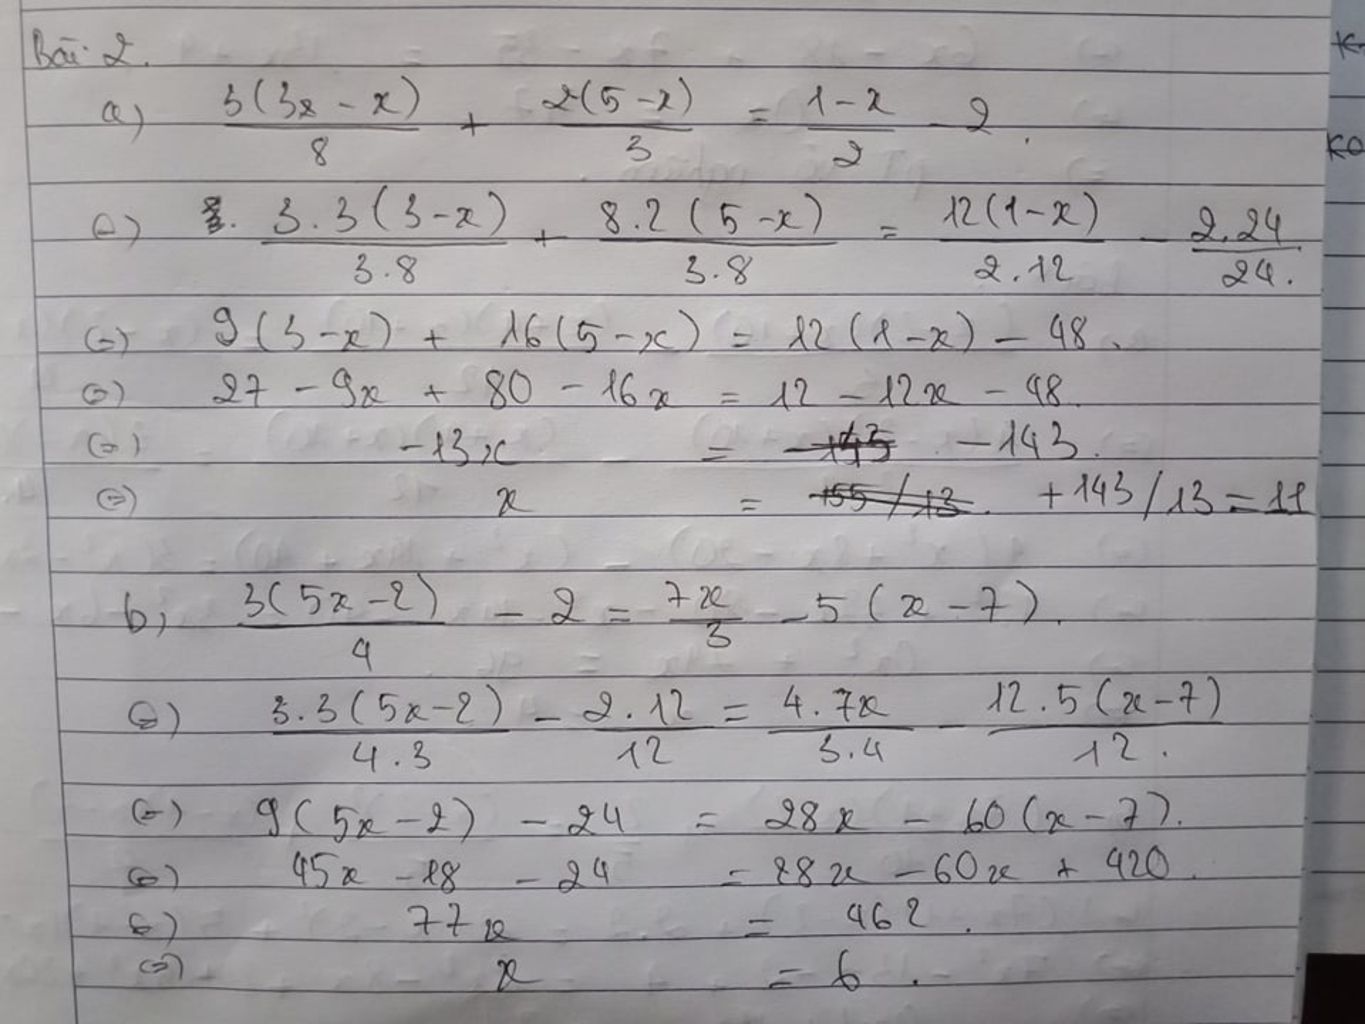 Bài 2.
a) 3(3x - x)/8 + 2(5-x)/3 = 1-x/2 - 2.
(=) 3.3(3-x)/3.8 + 8.2(5-x)/3.8 = 12(1-x)/2.12 - 2.24/24.
(=) 9(3-x) + 16(5-x) = 12(1-x) - 48.
(=) 27 - 9x + 80 - 16x = 12 - 12x - 48.
(=) -13x = -143.
(=) x = +143/13 = 11
b, 3(5x-2)/4 - 2 = 7x/3 - 5(x-7).
(=) 3.3(5x-2)/4.3 - 2.12/12 = 4.7x/3.4 - 12.5(x-7)/12.
(=) 9(5x-2) - 24 = 28x - 60(x-7).
(=) 45x - 18 - 24 = 28x - 60x + 420.
(=) 77x = 462.
(=) x = 6.